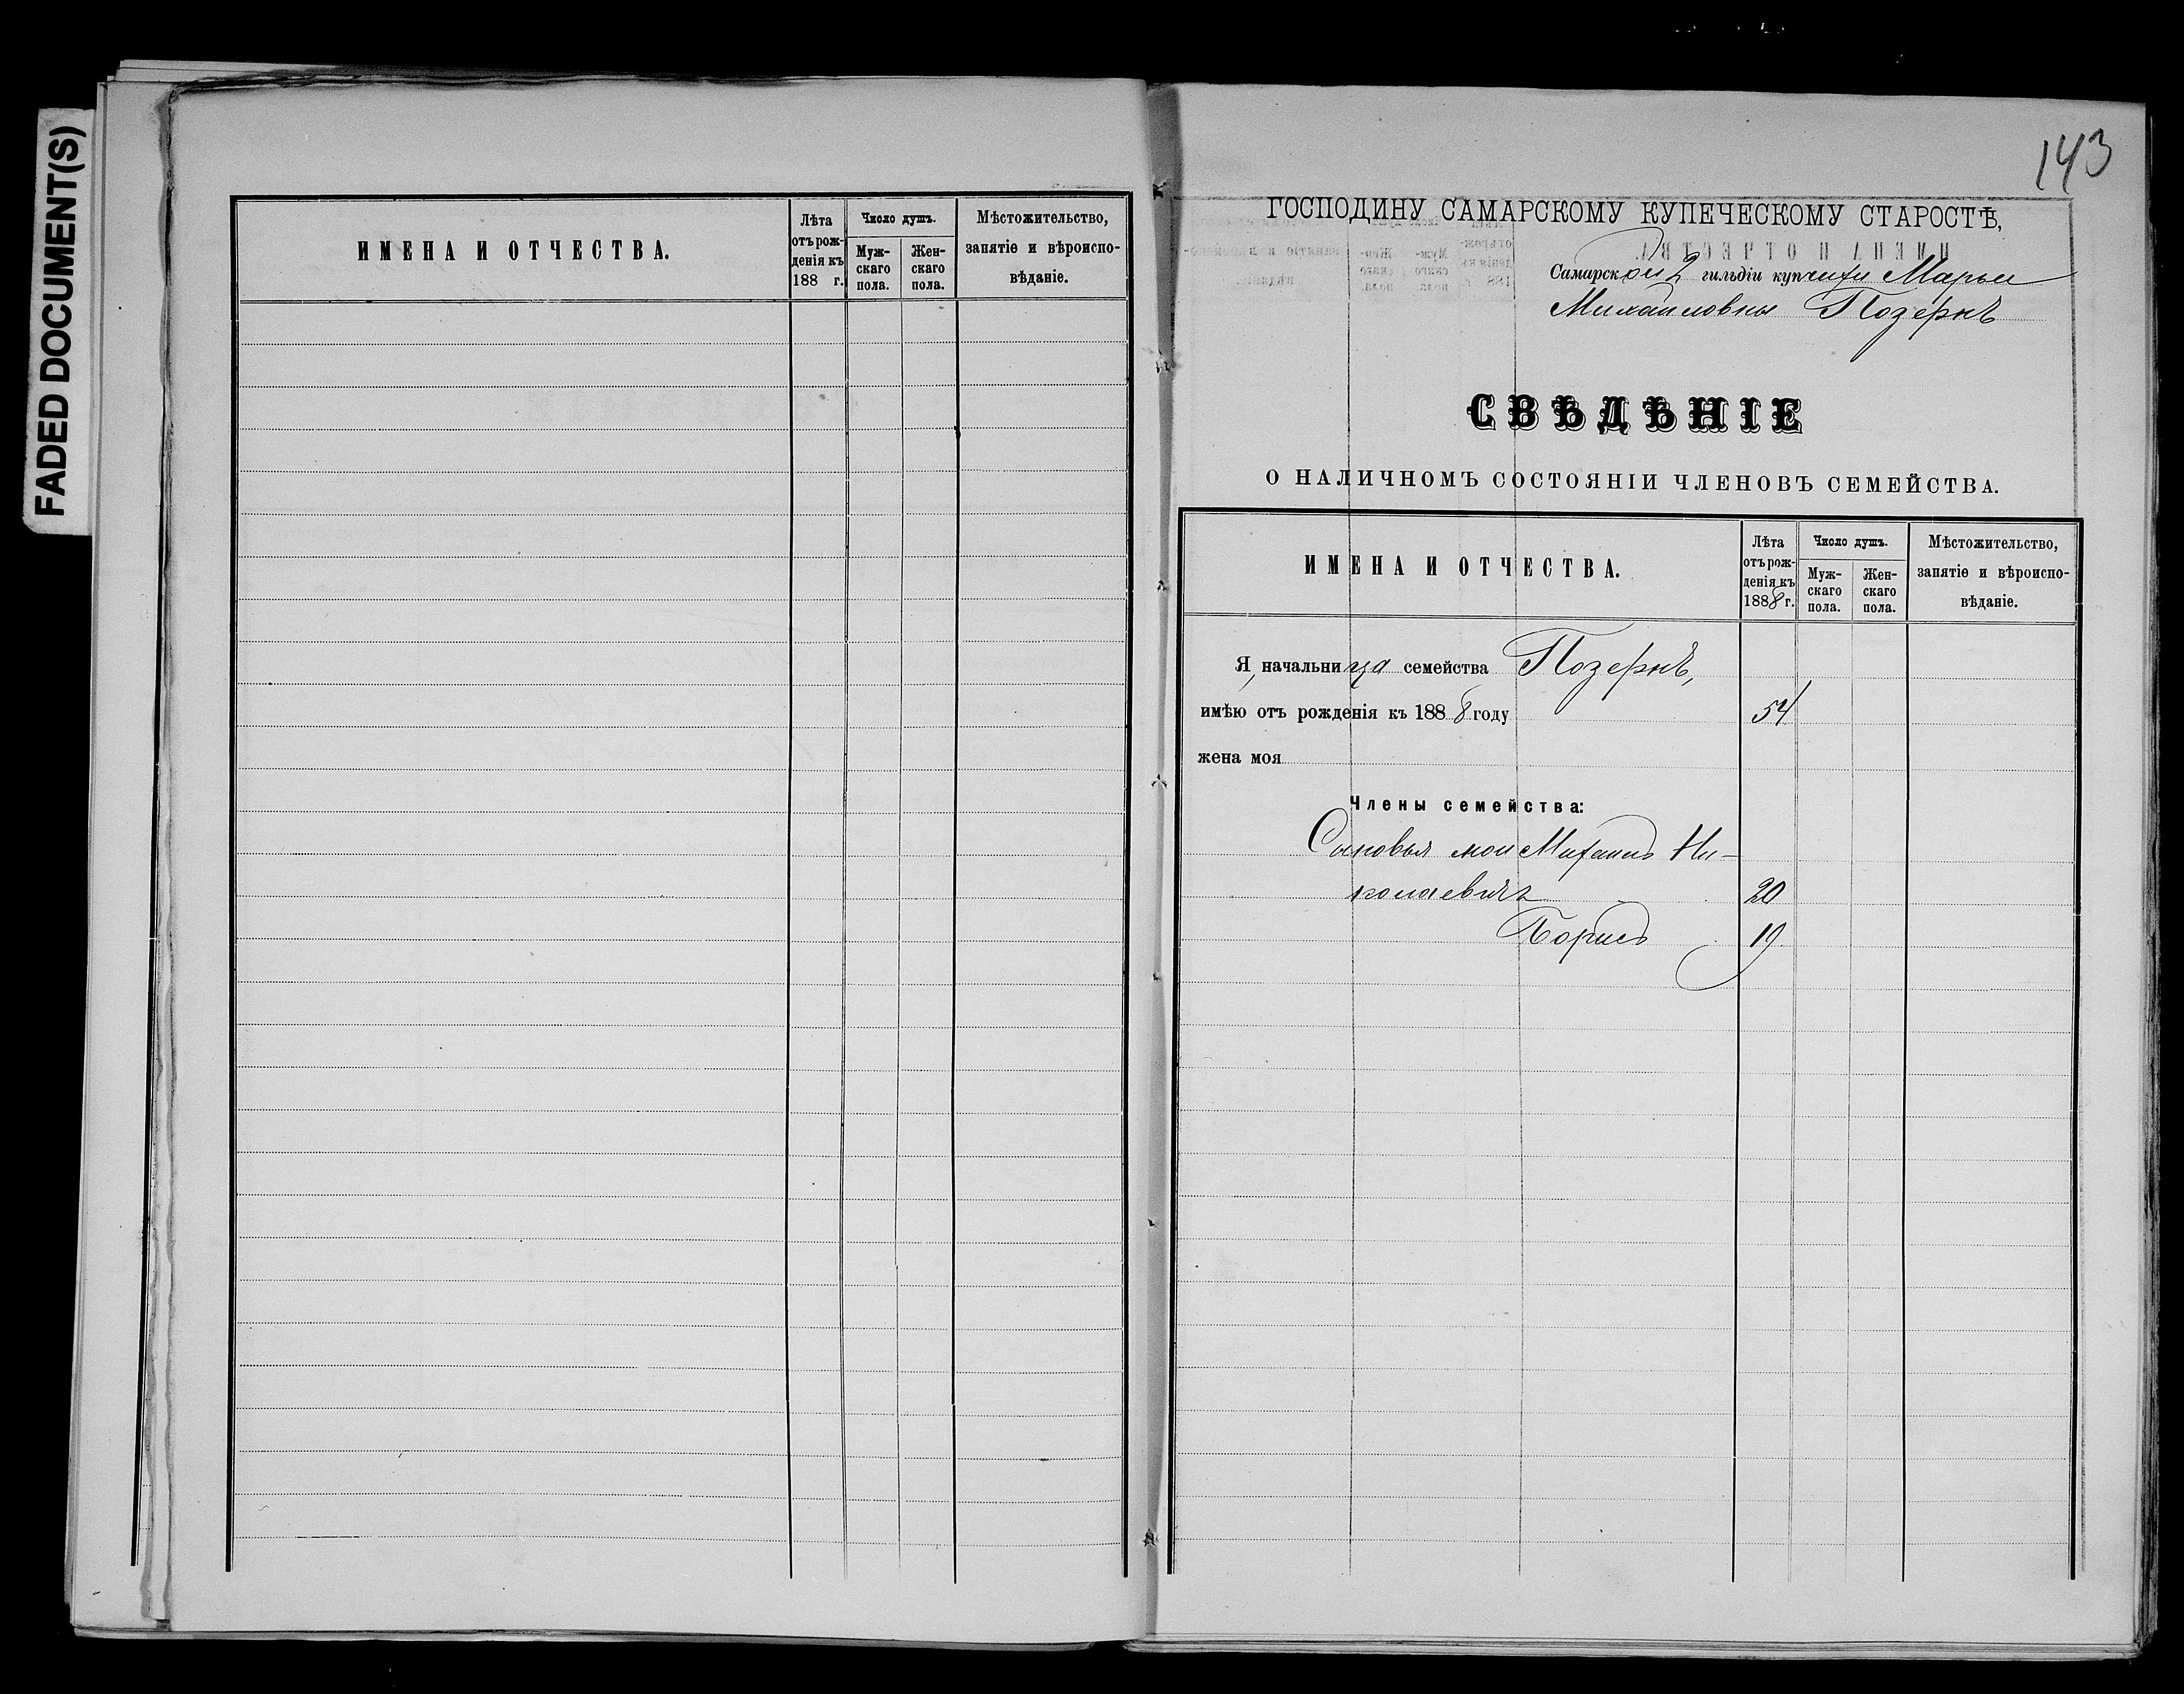 FADED DOCUMENT(S)
ИМЕНА И ОТЧЕСТВА.
Лѣта отъ рожденія къ 188 г.
Число душъ.
Мужскаго пола.
Женскаго пола.
Мѣстожительство, занятіе и вѣроисповѣданіе.
143
ГОСПОДИНУ САМАРСКОМУ КУПЕЧЕСКОМУ СТАРОСТѢ,
Самарской 2 гильдіи купчихи Марьи
Михайловны Позернъ
СВѢДѢНІЕ
О НАЛИЧНОМЪ СОСТОЯНІИ ЧЛЕНОВЪ СЕМЕЙСТВА.
ИМЕНА И ОТЧЕСТВА.
Лѣта
отъ рож-
денія къ
1888 г.
Число душъ.
Муж-
скаго
пола.
Жен-
скаго
пола.
Мѣстожительство,
занятіе и вѣроиспо-
вѣданіе.
Я, начальница семейства Позернъ,
имѣю отъ рожденія къ 1888 году 54
жена моя
Члены семейства:
Сыновья мои Михаилъ Ни-
колаевичъ 20
Борисъ 19